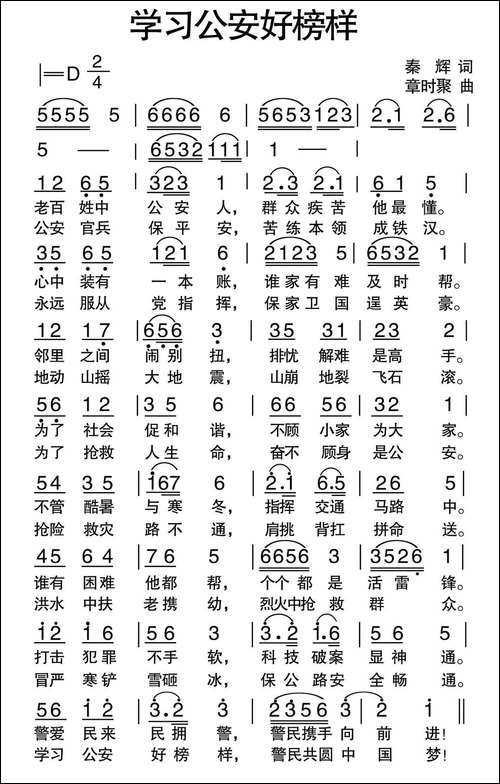 学习公安好榜样
1=D 2/4
秦 辉 词
章时聚 曲
5555 5 | 6666 6 | 5653 123 | 2·1 2·6 |
5 — — | 6532 111 | 1 — — |
12 65 | 323 1 | 2·3 2·1 | 61 5 |
老百 姓中 公 安 人， 群众疾苦 他最 懂。
公安 官兵 保 平 安， 苦练本领 成铁 汉。
35 65 | 121 6 | 2123 5 | 6532 1 |
心中 装有 一本 账， 谁家有难 及时 帮。
永远 服从 党指 挥， 保家卫国 逞英 豪。
12 17 | 656 3 | 35 31 | 23 2 |
邻里 之间 闹别 扭， 排忧 解难 是高 手。
地动 山摇 大地 震， 山崩 地裂 飞石 滚。
56 12 | 35 6 | 66 56 | 32 1 |
为了 社会 促和 谐， 不顾 小家 为大 家。
为了 抢救 人生 命， 奋不 顾身 是公 安。
54 35 | 167 6 | 2·1 6·5 | 26 5 |
不管 酷暑 与寒 冬， 指挥 交通 马路 中。
抢险 救灾 路不 通， 肩挑 背扛 拼命 送。
45 64 | 76 5 | 6656 3 | 3526 1 |
谁有 困难 他都 帮， 个个都是 活雷 锋。
洪水 中扶 老携 幼， 烈火中抢救 群 众。
12 16 | 56 3 | 3·2 1·6 | 56 5 |
打击 犯罪 不手 软， 科技 破案 显神 通。
冒严 寒铲 雪砸 冰， 保公 路安 全畅 通。
56 12 | 3·2 3 | 2356 3 | 2 1 ‖
警爱 民来 民拥 警， 警民携手向 前 进！
学习 公安 好榜 样， 警民共圆中 国 梦！